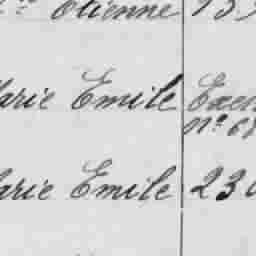 Etienne 13
Marie Emile Exem
n° 68
Marie Emile 230